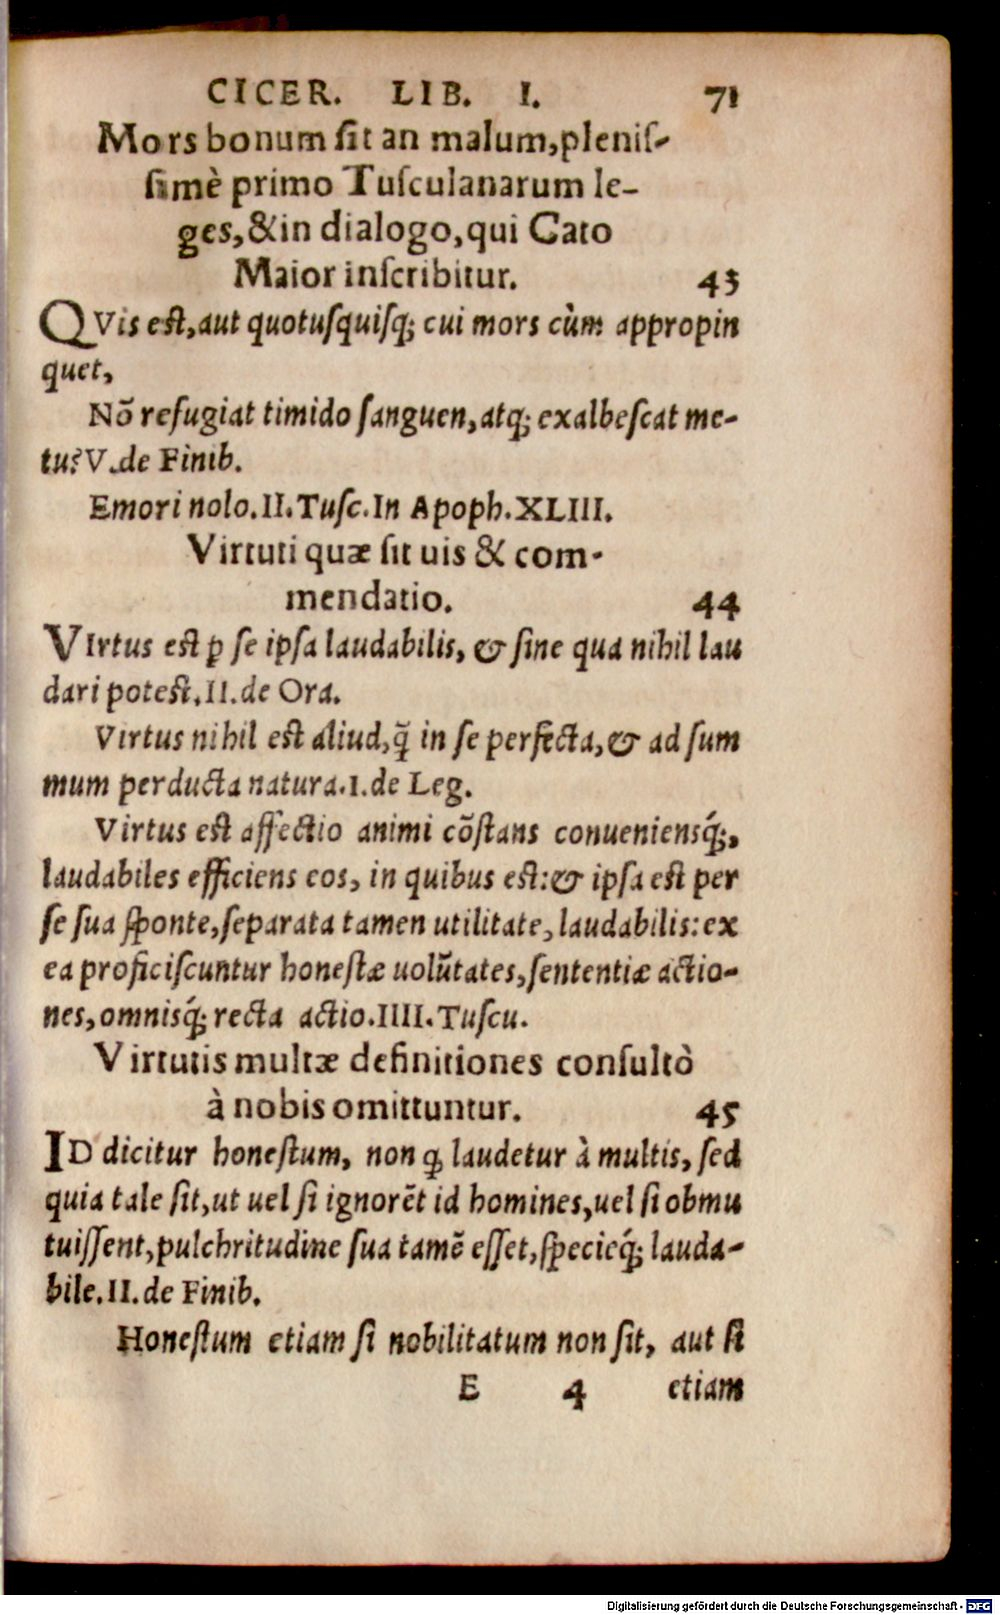 CICER. LIB. I. 71
Mors bonum ſit an malum,pleniſ-
ſimè primo Tuſculanarum le-
ges,&in dialogo,qui Cato
Maior inſcribitur. 43
QVis eſt,aut quotuſquiſq; cui mors cùm appropin
quet,
Nõ refugiat timido ſanguen,atq; exalbeſcat me-
tu? V.de Finib.
Emori nolo.II.Tuſc.In Apoph.XLIII.
Virtuti quæ ſit uis & com-
mendatio. 44
VIrtus eſt ꝑ ſe ipſa laudabilis, & ſine qua nihil lau
dari poteſt.II.de Ora.
Virtus nihil eſt aliud,q̃ in ſe perfecta,& ad ſum
mum perducta natura.I.de Leg.
Virtus eſt affectio animi cõſtans conueniensq́;,
laudabiles efficiens eos, in quibus eſt:& ipſa eſt per
ſe ſua ſponte,ſeparata tamen utilitate, laudabilis: ex
ea proficiſcuntur honeſtæ uolũtates,ſententiæ actio-
nes,omnisq́; recta actio.IIII.Tuſcu.
Virtutis multæ definitiones conſultò
à nobis omittuntur. 45
ID dicitur honeſtum, non ꝙ laudetur à multis, ſed
quia tale ſit,ut uel ſi ignorẽt id homines,uel ſi obmu
tuiſſent,pulchritudine ſua tamẽ eſſet,ſpecieq́; lauda-
bile.II.de Finib.
Honeſtum etiam ſi nobilitatum non ſit, aut ſi
E 4 etiam
Digitalisierung gefördert durch die Deutsche Forschungsgemeinschaft - DFG